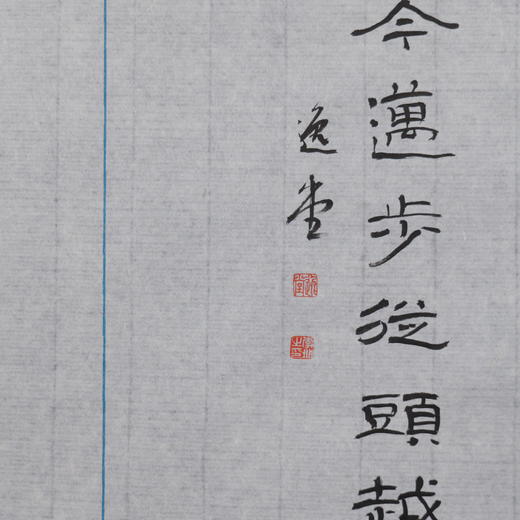 今邁步從頭越
逸堂